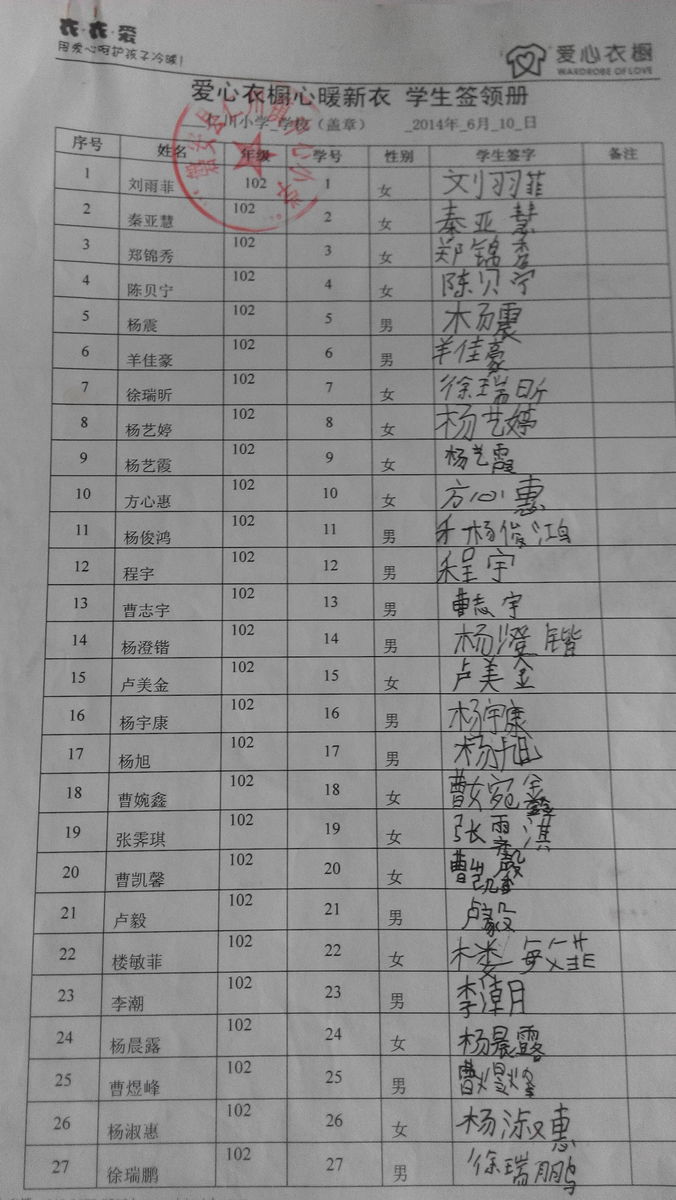 衣·衣·爱
用爱心呵护孩子冷暖!
爱心衣橱
WARDROBE OF LOVE
爱心衣橱心暖新衣 学生签领册
仁川小学_学校（盖章） _2014年_6月_10_日
序号 姓名 年级 学号 性别 学生签字 备注
1 刘雨菲 102 1 女 刘羽菲
2 秦亚慧 102 2 女 秦亚慧
3 郑锦秀 102 3 女 郑锦秀
4 陈贝宁 102 4 女 陈贝宁
5 杨震 102 5 男 杨震
6 羊佳豪 102 6 男 羊佳豪
7 徐瑞昕 102 7 女 徐瑞昕
8 杨艺婷 102 8 女 杨艺婷
9 杨艺霞 102 9 女 杨艺霞
10 方心惠 102 10 女 方心惠
11 杨俊鸿 102 11 男 杨俊鸿
12 程宇 102 12 男 程宇
13 曹志宇 102 13 男 曹志宇
14 杨澄锴 102 14 男 杨澄锴
15 卢美金 102 15 女 卢美金
16 杨宇康 102 16 男 杨宇康
17 杨旭 102 17 男 杨旭
18 曹婉鑫 102 18 女 曹婉鑫
19 张霁琪 102 19 女 张霁淇
20 曹凯馨 102 20 女 曹凯馨
21 卢毅 102 21 男 卢毅
22 楼敏菲 102 22 女 楼敏菲
23 李潮 102 23 男 李潮
24 杨晨露 102 24 女 杨晨露
25 曹煜峰 102 25 男 曹煜烽
26 杨淑惠 102 26 女 杨淑惠
27 徐瑞鹏 102 27 男 徐瑞鹏